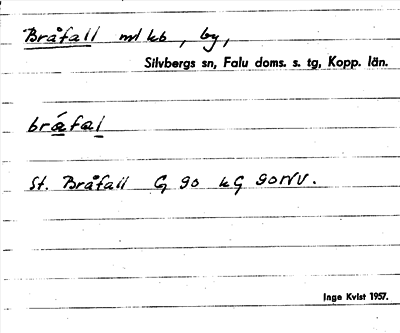 Bråfall ml kb, by,
Silvbergs sn, Falu doms. s. tg, Kopp. län.
bråfal
St. Bråfall G 90 kG 90NV.
Inge Kvist 1957.